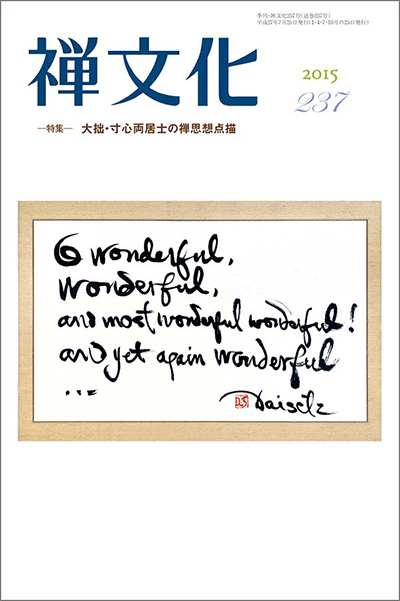 季刊・禅文化237号(通巻237号)
平成27年7月25日発行(1・4・7・10月の25日発行)
禅文化
2015
237
―特集― 大拙・寸心両居士の禅思想点描
O wonderful,
wonderful,
and most wonderful wonderful!
and yet again wonderful
...
Daisetz